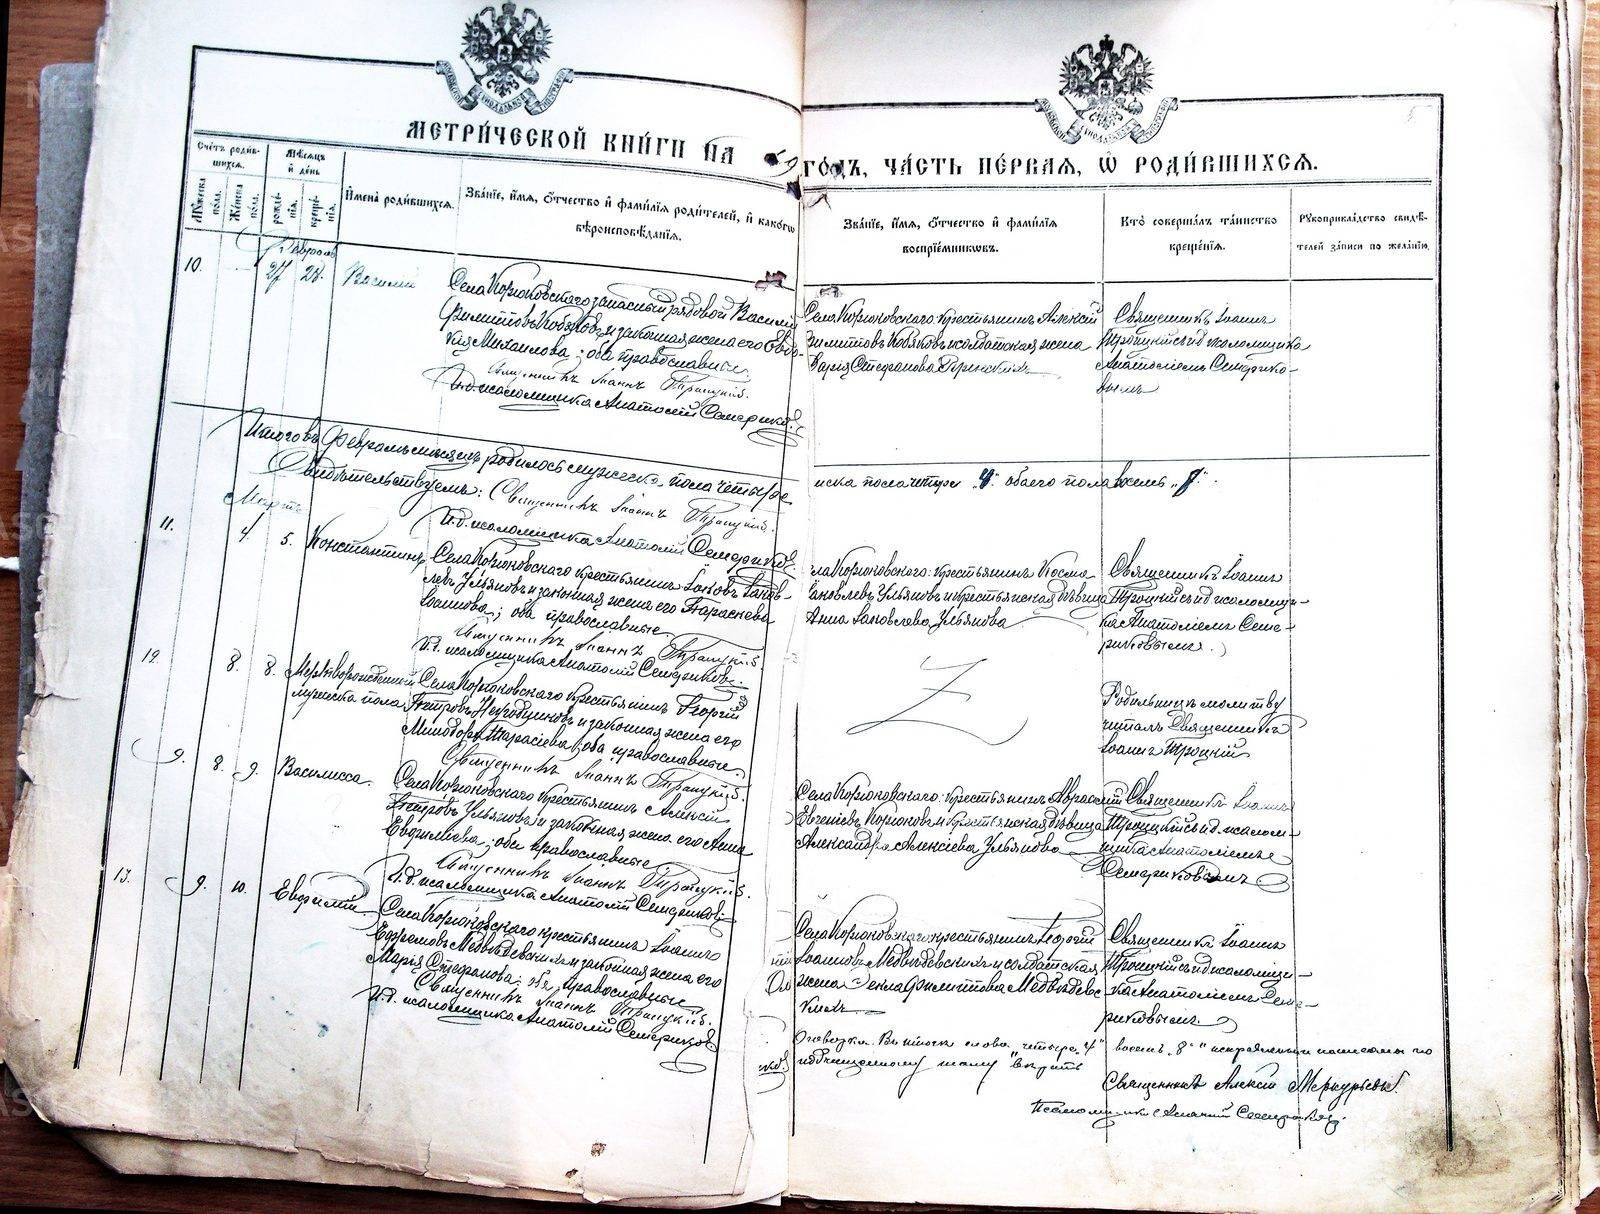 МЕТРИ́ЧЕСКОЙ КНИ́ГИ НА ГО́ДЪ, ЧА́СТЬ ПЕ́РВАЯ, Ѡ҆ РОДИ́ВШИХСЯ.
Сче́тъ роди́в-
шихся.
Мѣ́сяцъ
и҆ де́нь
Му́жеска
по́ла.
Же́нска
по́ла.
рожде́-
нія.
креще́-
нія.
И҆мена̀ роди́вшихся.
Зва́ніе, и҆́мя, ѻ҆́тчество и҆ фами́лія роди́телей, и҆ како́гѡ
вѣроисповѣ́данія.
Зва́ніе, и҆́мя, ѻ҆́тчество и҆ фами́лія
воспріе́мниковъ.
Кто̀ соверша́лъ та́инство
креще́нія.
Рукоприкла́дство свидѣ́-
телей за́писи по жела́нію.
Февраль
10. 27 28. Василій
Села Корюковскаго запасный рядовой Василій
Филипповъ Кобяковъ и законная жена его Евдо-
кія Михаилова; оба православные.
Священникъ Іоаннъ Троицкій.
И.д. псаломщика Анатолій Семериковъ.
Села Корюковскаго: крестьянинъ Алексій
Филипповъ Кобяковъ и солдатская жена
Марія Стефанова
Священникъ Іоаннъ
Троицкій съ и.д. псаломщика
Анатоліемъ Семерико-
вымъ
Итого въ Февралѣ мѣсяцѣ родилось мужеска пола четыре
нска пола четыре „4“ обоего пола восемь „8“
Свидѣтельствуемъ: Священникъ Іоаннъ Троицкій.
И.д. псаломщика Анатолій Семериковъ.
Мартъ
11. 4. 5. Константинъ
Села Корюковскаго крестьянинъ Іаковъ Іаков-
левъ Ульяновъ и законная жена его Параскева
Іоаннова; оба православные.
Священникъ Іоаннъ Троицкій.
И.д. псаломщика Анатолій Семериковъ.
ла Корюковскаго: крестьянинъ Косма
Іаковлевъ Ульяновъ и крестьянская дѣвица
Анна Іаковлева Ульянова
Священникъ Іоаннъ
Троицкій съ и.д. псаломщи-
ка Анатоліемъ Семе-
риковымъ.
12. 8. 8. Мертворожденный
мужска пола
Села Корюковскаго крестьянинъ Георгій
Петровъ и законная жена его
Миnодора Тарасіева, оба православные.
Священникъ Іоаннъ Троицкій.
Z
Родильницѣ молитву
читалъ Священникъ
Іоаннъ Троицкій
9. 8. 9. Василисса.
Села Корюковскаго крестьянинъ Алексій
Петровъ Ульяновъ и законная жена его Анна
Евфиміева; оба православные
Священникъ Іоаннъ Троицкій.
И.д. псаломщика Анатолій Семериковъ
Села Корюковскаго: крестьянинъ Авраамій
Евгеніевъ Корюковъ и крестьянская дѣвица
Александра Алексіева Ульянова
Священникъ Іоаннъ
Троицкій съ и.д. псалом-
щика Анатоліемъ
Семериковымъ
13. 9. 10. Евфимій
Села Корюковскаго крестьянинъ Іоаннъ
Ефремовъ Медвѣдевскихъ и законная жена его
Марія Стефанова; оба православные
Священникъ Іоаннъ Троицкій.
И.д. псаломщика Анатолій Семериковъ
Села Корюковскаго: крестьянинъ Георгій
Іоанновъ Медвѣдевскихъ и солдатская
жена Филиппова Медвѣдевс
кихъ.
Священникъ Іоаннъ
Троицкій съ и.д. псаломщи-
ка Анатоліемъ Семе-
риковымъ.
Оговорка. Въ итогѣ слова четыре „4“ восемь „8“ исправленныя написаны по
подчищенному тому вѣрить
Священникъ Алексій Меркурьевъ.
Псаломщикъ